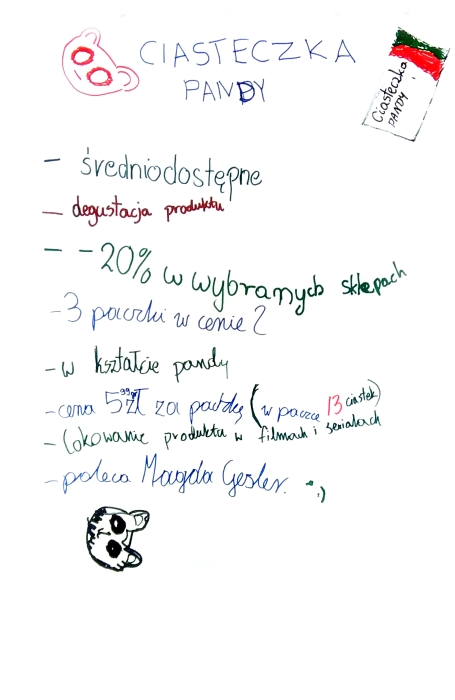 CIASTECZKA
PANDY
Ciasteczka
PANDY
- średniodostępne
- degustacja produktu
- -20% w wybranych sklepach
- 3 paczki w cenie 2
- w kształcie pandy
- cena 5⁹⁹zł za paczkę (w paczce 13 ciastek)
- lokowanie produktu w filmach i serialach
- poleca Magda Gesler. :)